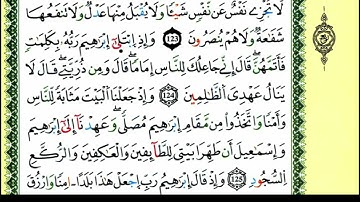 لَا تَجْزِي نَفْسٌ عَن نَّفْسٍ شَيْئًا وَلَا يُقْبَلُ مِنْهَا عَدْلٌ وَلَا تَنفَعُهَا
شَفَٰعَةٌ وَلَا هُمْ يُنصَرُونَ 123 وَإِذِ ابْتَلَىٰ إِبْرَٰهِيمَ رَبُّهُ بِكَلِمَٰتٍ
فَأَتَمَّهُنَّ قَالَ إِنِّي جَاعِلُكَ لِلنَّاسِ إِمَامًا قَالَ وَمِن ذُرِّيَّتِي قَالَ لَا
يَنَالُ عَهْدِي الظَّٰلِمِينَ 124 وَإِذْ جَعَلْنَا الْبَيْتَ مَثَابَةً لِّلنَّاسِ
وَأَمْنًا وَاتَّخِذُوا مِن مَّقَامِ إِبْرَٰهِيمَ مُصَلًّى وَعَهِدْنَا إِلَىٰ إِبْرَٰهِيمَ
وَإِسْمَٰعِيلَ أَن طَهِّرَا بَيْتِيَ لِلطَّائِفِينَ وَالْعَٰكِفِينَ وَالرُّكَّعِ
السُّجُودِ 125 وَإِذْ قَالَ إِبْرَٰهِيمُ رَبِّ اجْعَلْ هَٰذَا بَلَدًا ءَامِنًا وَارْزُقْ